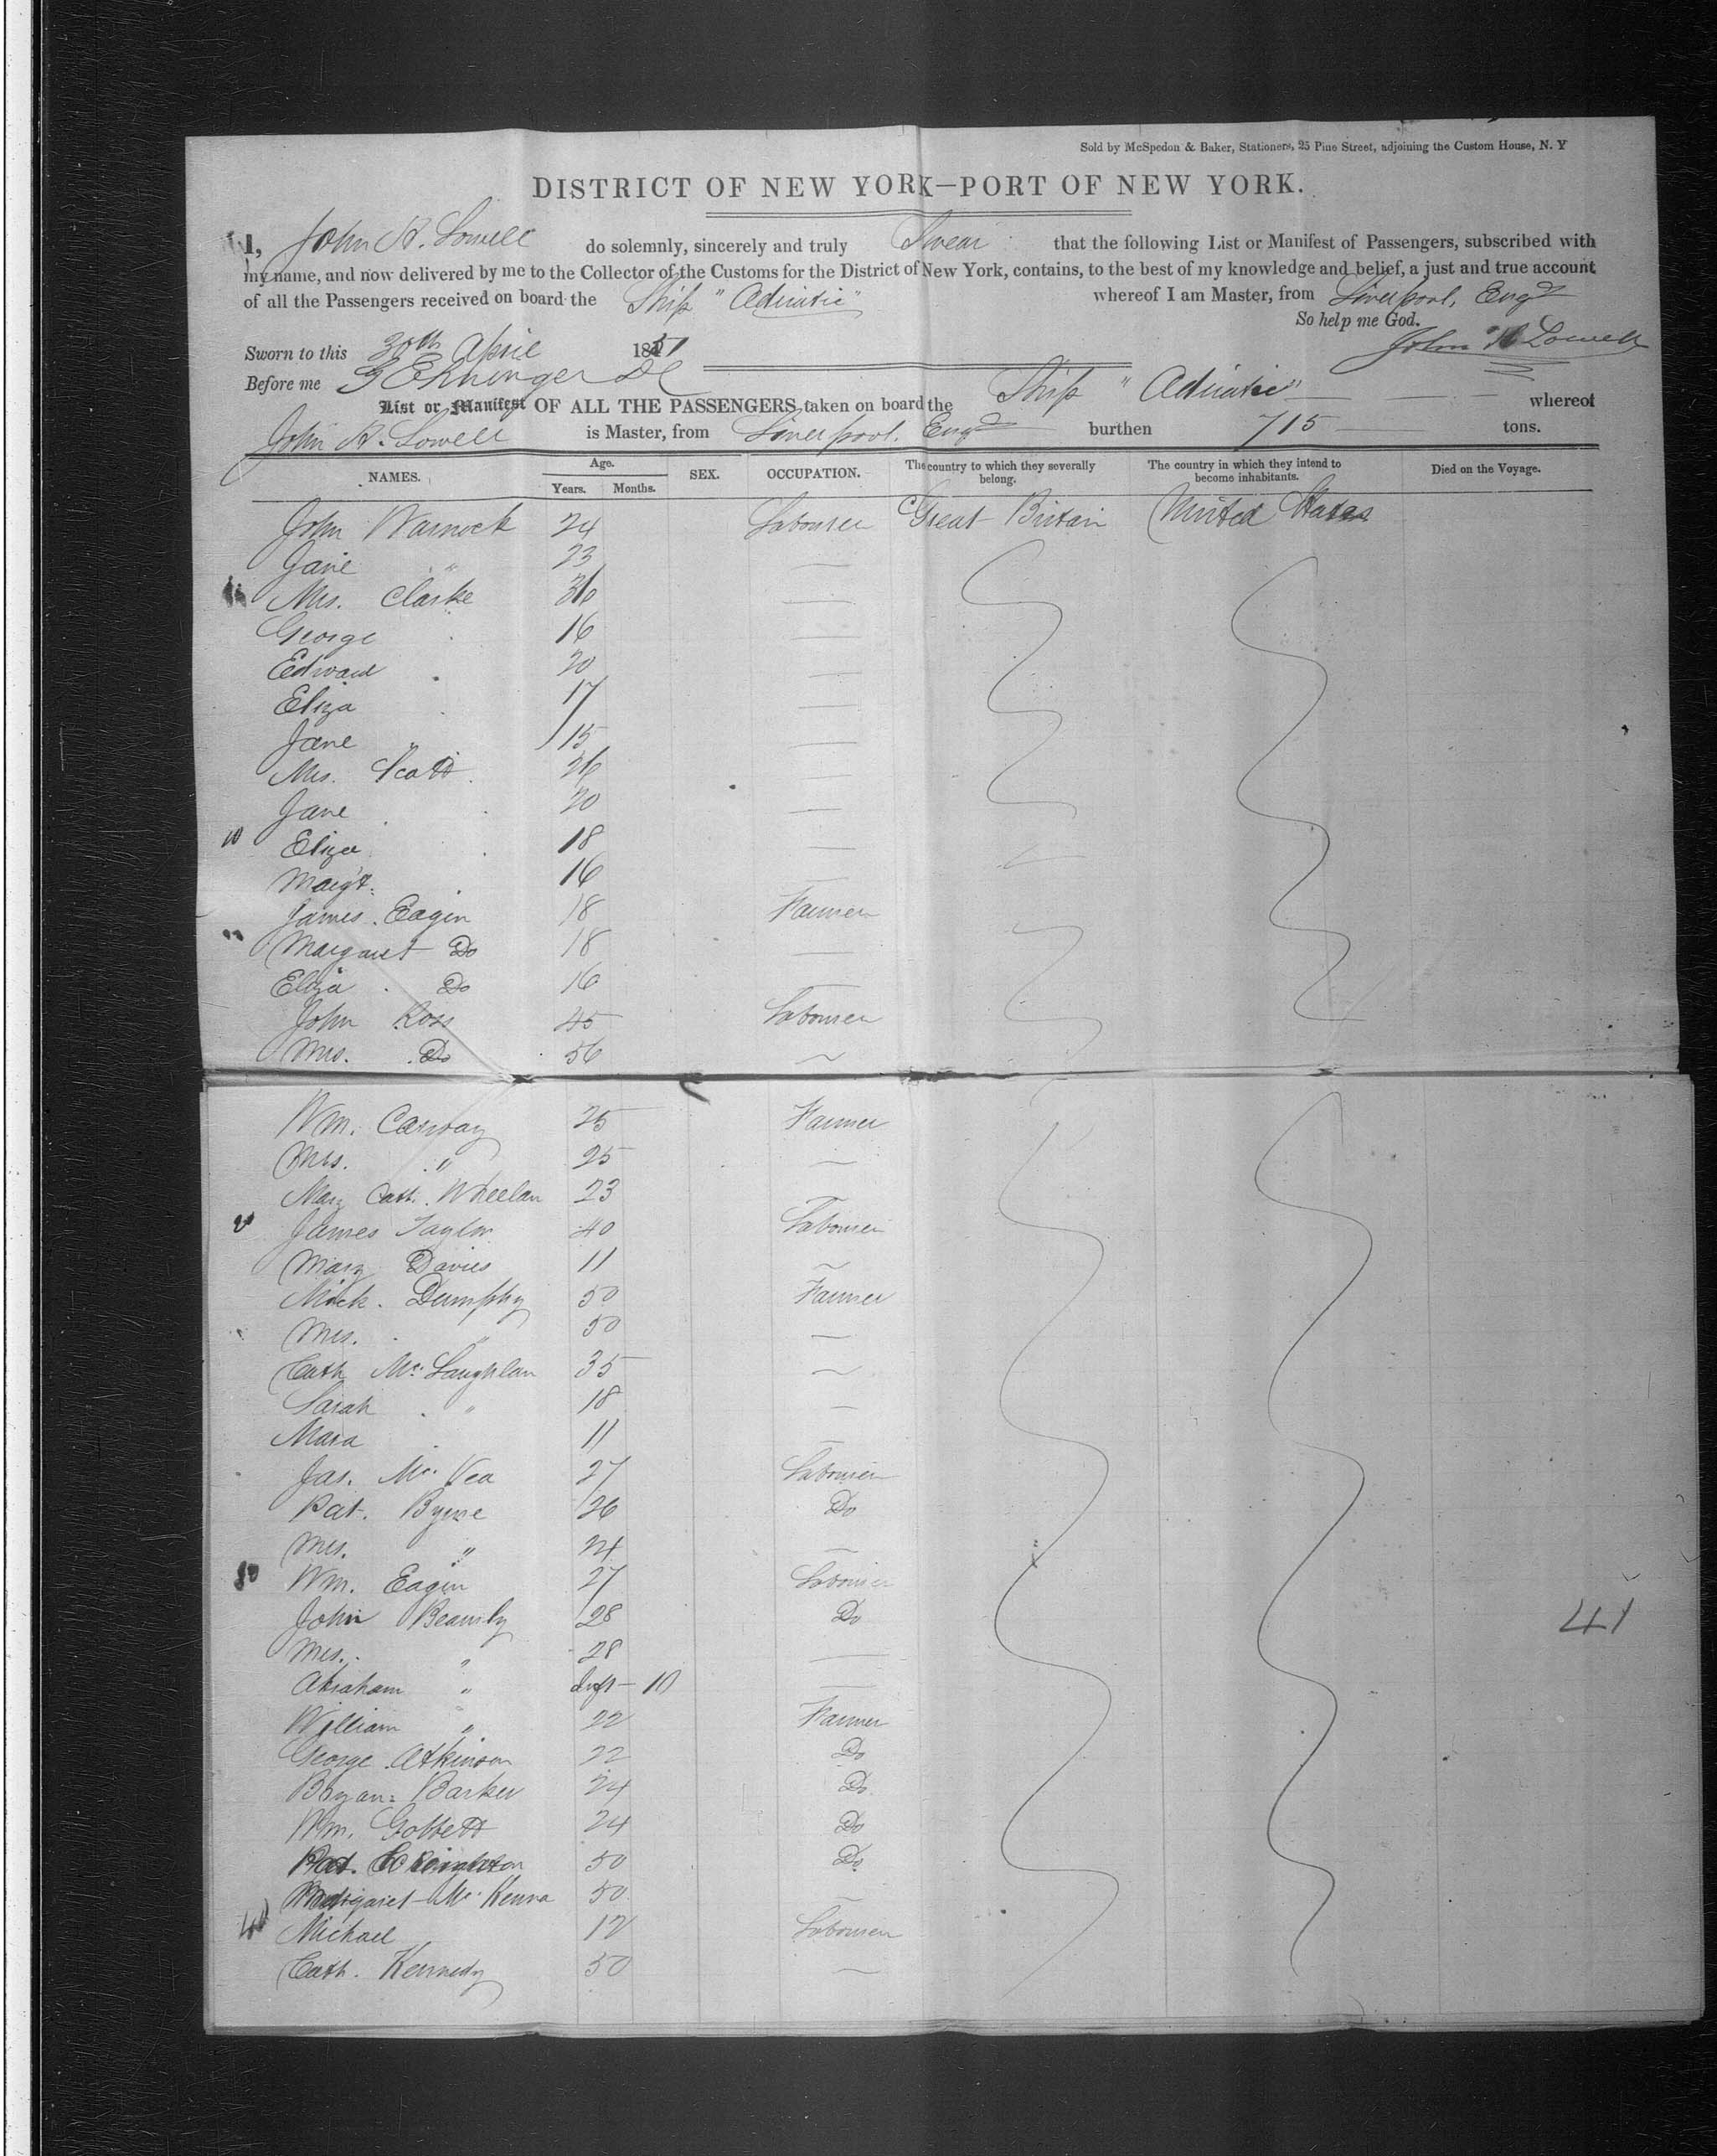 Sold by McSpedon & Baker, Stationers, 25 Pine Street, adjoining the Custom House, N. Y
DISTRICT OF NEW YORK—PORT OF NEW YORK.
I, John H. Lowell do solemnly, sincerely and truly Swear that the following List or Manifest of Passengers, subscribed with
my name, and now delivered by me to the Collector of the Customs for the District of New York, contains, to the best of my knowledge and belief, a just and true account
of all the Passengers received on board the Ship "Adriatic" whereof I am Master, from Liverpool, Engd
So help me God.
Sworn to this 30th April 1851 John H Lowell
Before me
List or Manifest OF ALL THE PASSENGERS taken on board the Ship "Adriatic" whereof
John H. Lowell is Master, from Liverpool. Engd burthen 715 tons.
NAMES. Age. Years. Months. SEX. OCCUPATION. The country to which they severally belong. The country in which they intend to become inhabitants. Died on the Voyage.
John Warnock 24 Labourer Great Britain United States
Jane " 23
Mrs. Clarke 36
George 16
Edward 20
Eliza 17
Jane " 15
Mrs. Scott 26
Jane 20
10 Eliza 18
Margt. 16
James Eagin 18 Farmer
Margaret Do 18
Eliza Do 16
John Ross 45 Labourer
Mrs. Do 56
Wm. Conway 25 Farmer
Mrs. " 25
Mary Cath. Wheelan 23
James Taylor 40 Labourer
Mary Davies 11
Mick. Dumphy 50 Farmer
Mrs. " 50
Cath Mc Laughlan 35
Sarah " 18
Mara 11
Jas. Mc Vea 27 Labourer
Pat. Byrne 26 Do
Mrs. " 24
30 Wm. Eagin 27 Labourer
John Beamly 28 Do
Mrs. " 28
Abraham " Inft 10
William " 22 Farmer
George Atkinson 22 Do
Bryan Barker 24 Do
Wm. Gobbett 24 Do
Pat. 50 Do
Margaret Mc Kenna 50
40 Michael 12 Labourer
Cath. Kennedy 50
41